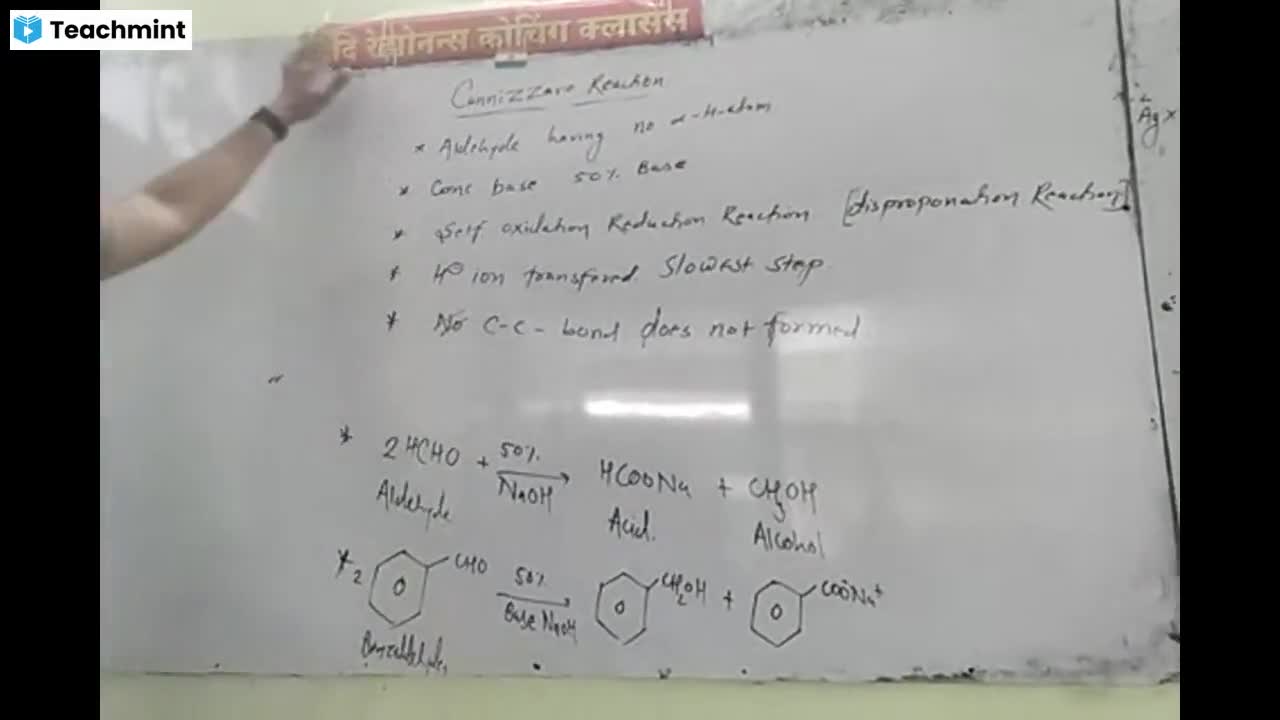 Teachmint
दि रेसोनन्स कोचिंग क्लासेस
Cannizzaro Reaction
* Aldehyde having no α-H-atom
* Conc base 50% Base
* Self oxidation Reduction Reaction [disproponation Reaction]
* H⊖ ion transfered. Slowest step.
* No C-C- bond does not formed
Ag x
* 2HCHO + 50% NaOH → HCOONa + CH3OH
Aldehyde Acid. Alcohol
* 2 CHO 50% Base NaOH → CH2OH + COO⁻Na⁺
Benzaldehyde